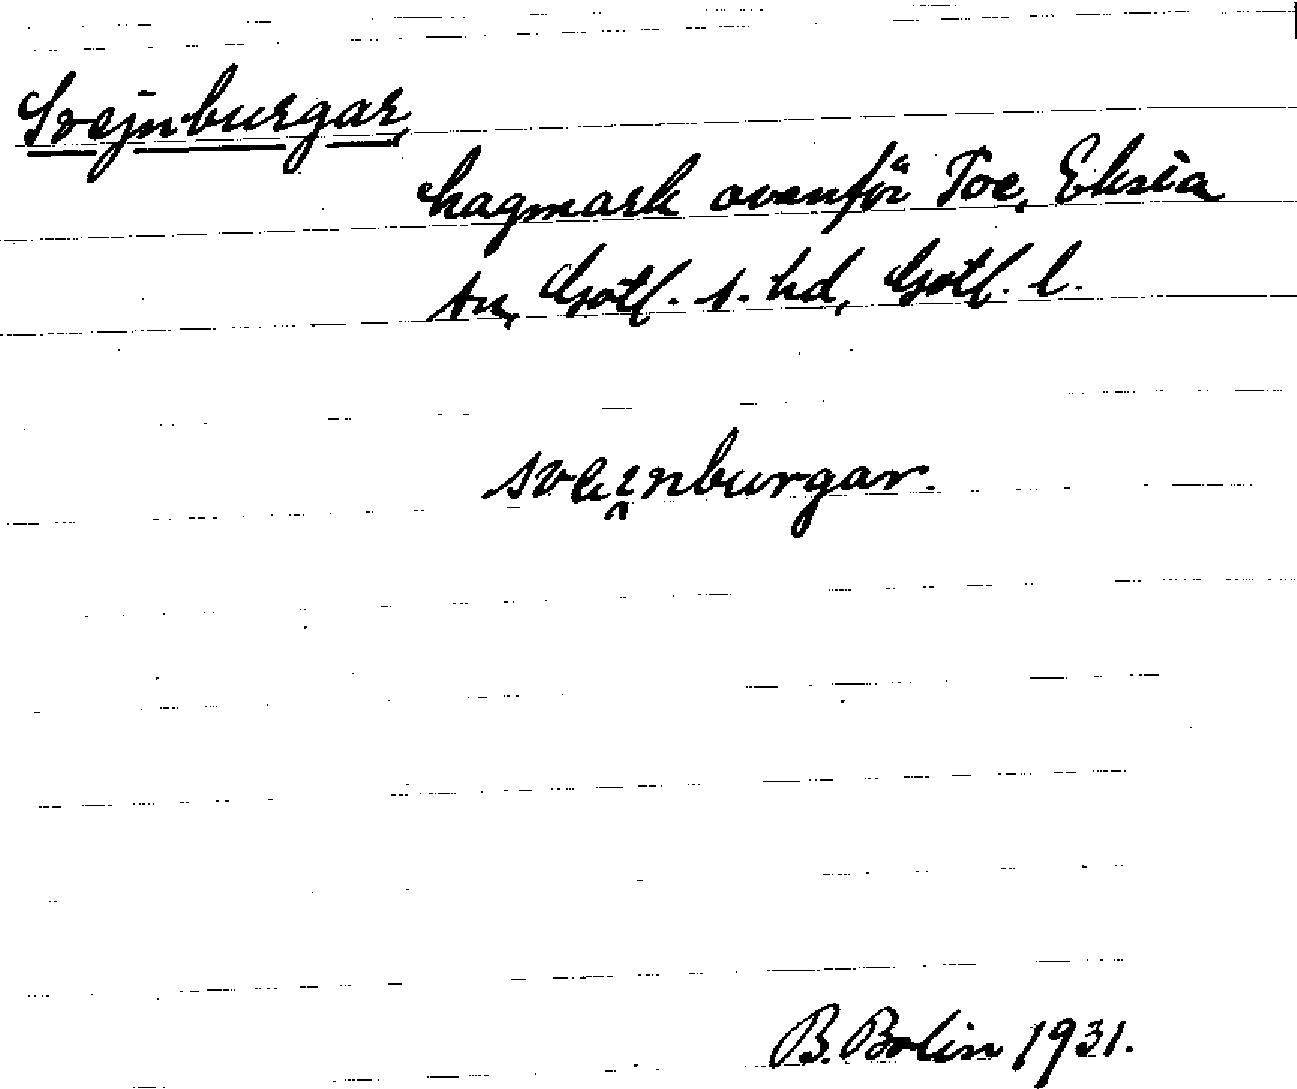 Svejnburgar,
hagmark ovanför Toe, Eksta
sn, Gotl. s. hd, Gotl. l.
sveı̯nburgar.
B. Bolin 1931.